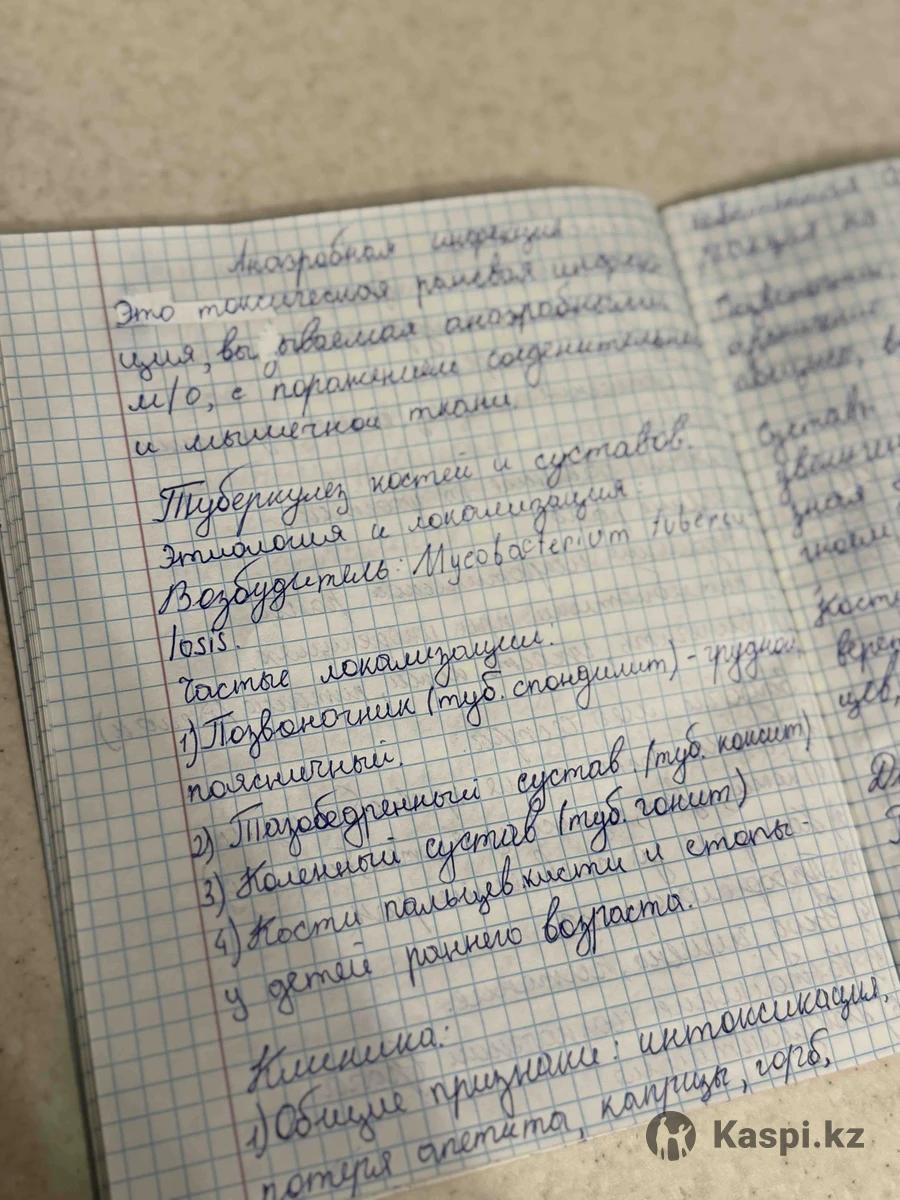 Анаэробная инфекция
Это токсическая раневая инфек-
ция, вызываемая анаэробными
м/о, с поражением соеденительной
и мышечной ткани.
Туберкулез костей и суставов.
Этиология и локализация:
Возбудитель: Mycobacterium tubercu
losis.
Частые локализации:
1) Позвоночник (туб. спондилит) - грудной,
поясничный.
2) Тазобедренный сустав (туб. коксит)
3) Коленный сустав (туб. гонит)
4) Кости пальцев кисти и стопы -
у детей раннего возраста.
Клиника:
1) Общие признаки: интоксикация,
потеря апетита, капризы, горб,
Сустав
увеличен
зная
Кост
цев,
Kaspi.kz